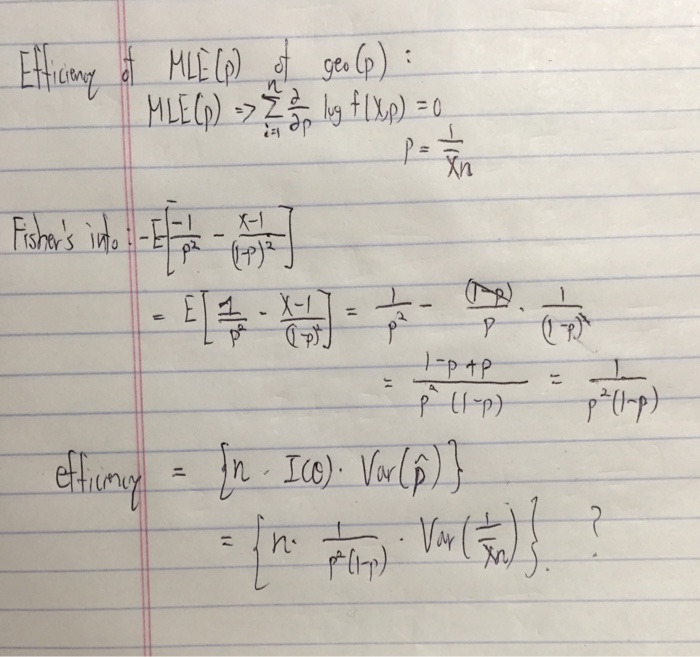 Efficiency of MLE(p) of geo(p) :
MLE(p) => Σ_{i=1}^{n} ∂/∂p log f(X,p) = 0
p = 1/X̄n
Fisher's info : -E[-1/p² - (x-1)/(1-p)²]
= E[1/p² - (x-1)/(1-p)²] = 1/p² - (1-p)/p · 1/(1-p)²
= (1-p+p)/(p²(1-p)) = 1/(p²(1-p))
efficiency = {n · I(θ) · Var(p̂)}
= {n · 1/(p²(1-p)) · Var(1/X̄n)}. ?